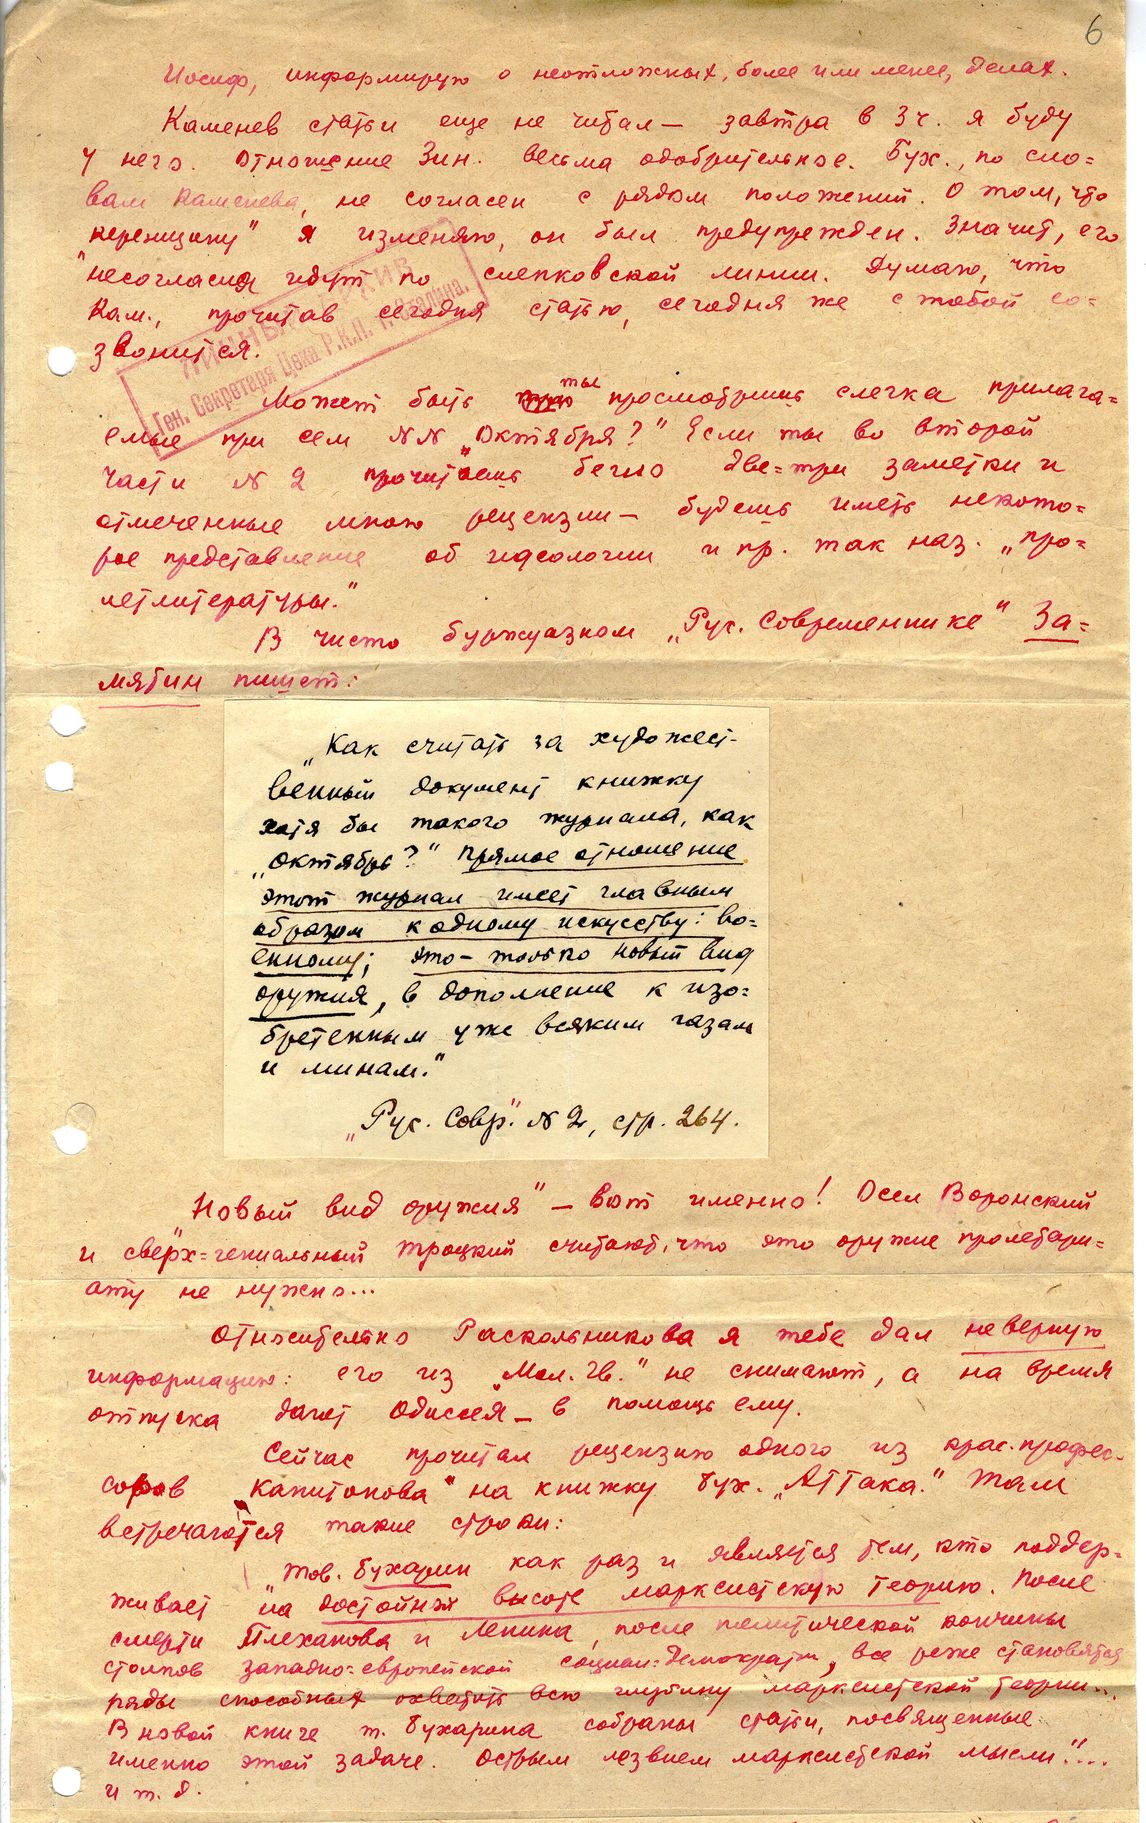 6
Иосиф, информирую о неотложных, более или менее, делах.
Каменев статьи еще не читал — завтра в 3 ч. я буду
у него. Отношение Зин. весьма одобрительное. Бух., по сло=
вам Каменева, не согласен с рядом положений. О том, что
"перенищину" я изменяю, он был предупрежден. Значит, его
"несогласия" идут по слепковской линии. Думаю, что
Кам., прочитав сегодня статью, сегодня же с тобой со=
звонится.
ЛИЧНЫЙ АРХИВ
Ген. Секретаря Цека Р.К.П. т. Сталина.
Может быть ты просмотришь слегка прилага=
емые при сем NN "Октября?" Если ты во второй
части N 2 прочитаешь бегло две=три заметки и
отмеченные мною рецензии — будешь иметь некото=
рое представление об идеологии и пр. так наз. "про=
летлитературы."
В чисто буржуазном "Рус. Современнике" За=
мятин пишет:
"Как считать за художест-
венный документ книжку
хотя бы такого журнала, как
"Октябрь?" Прямое отношение
этот журнал имеет главным
образом к одному искусству: во=
енному; это — только новый вид
оружия, в дополнение к изо=
бретенным уже всяким газам
и минам."
"Рус. Совр." N 2, стр. 264.
"Новый вид оружия" — вот именно! Осел Воронский
и сверх=гениальный Троцкий считают, что это оружие пролетари=
ату не нужно...
Относительно Раскольникова я тебе дал неверную
информацию: его из "Мол. Гв." не снимают, а на время
отпуска дают Одиссея — в помощь ему.
Сейчас прочитал рецензию одного из крас. профес-
соров "Капитонова" на книжку Бух. "Аттака." Там
встречаются такие строки:
"Тов. Бухарин как раз и является тем, кто поддер=
живает на достойной высоте марксистскую теорию. После
смерти Плеханова и Ленина, после политической кончины
столпов западно=европейской социал=демократии, все реже становятся
ряды способных охватить всю глубину марксистской теории...
В новой книге т. Бухарина собраны статьи, посвященные
именно этой задаче. Острым лезвием марксистской мысли"!...
и т. д.